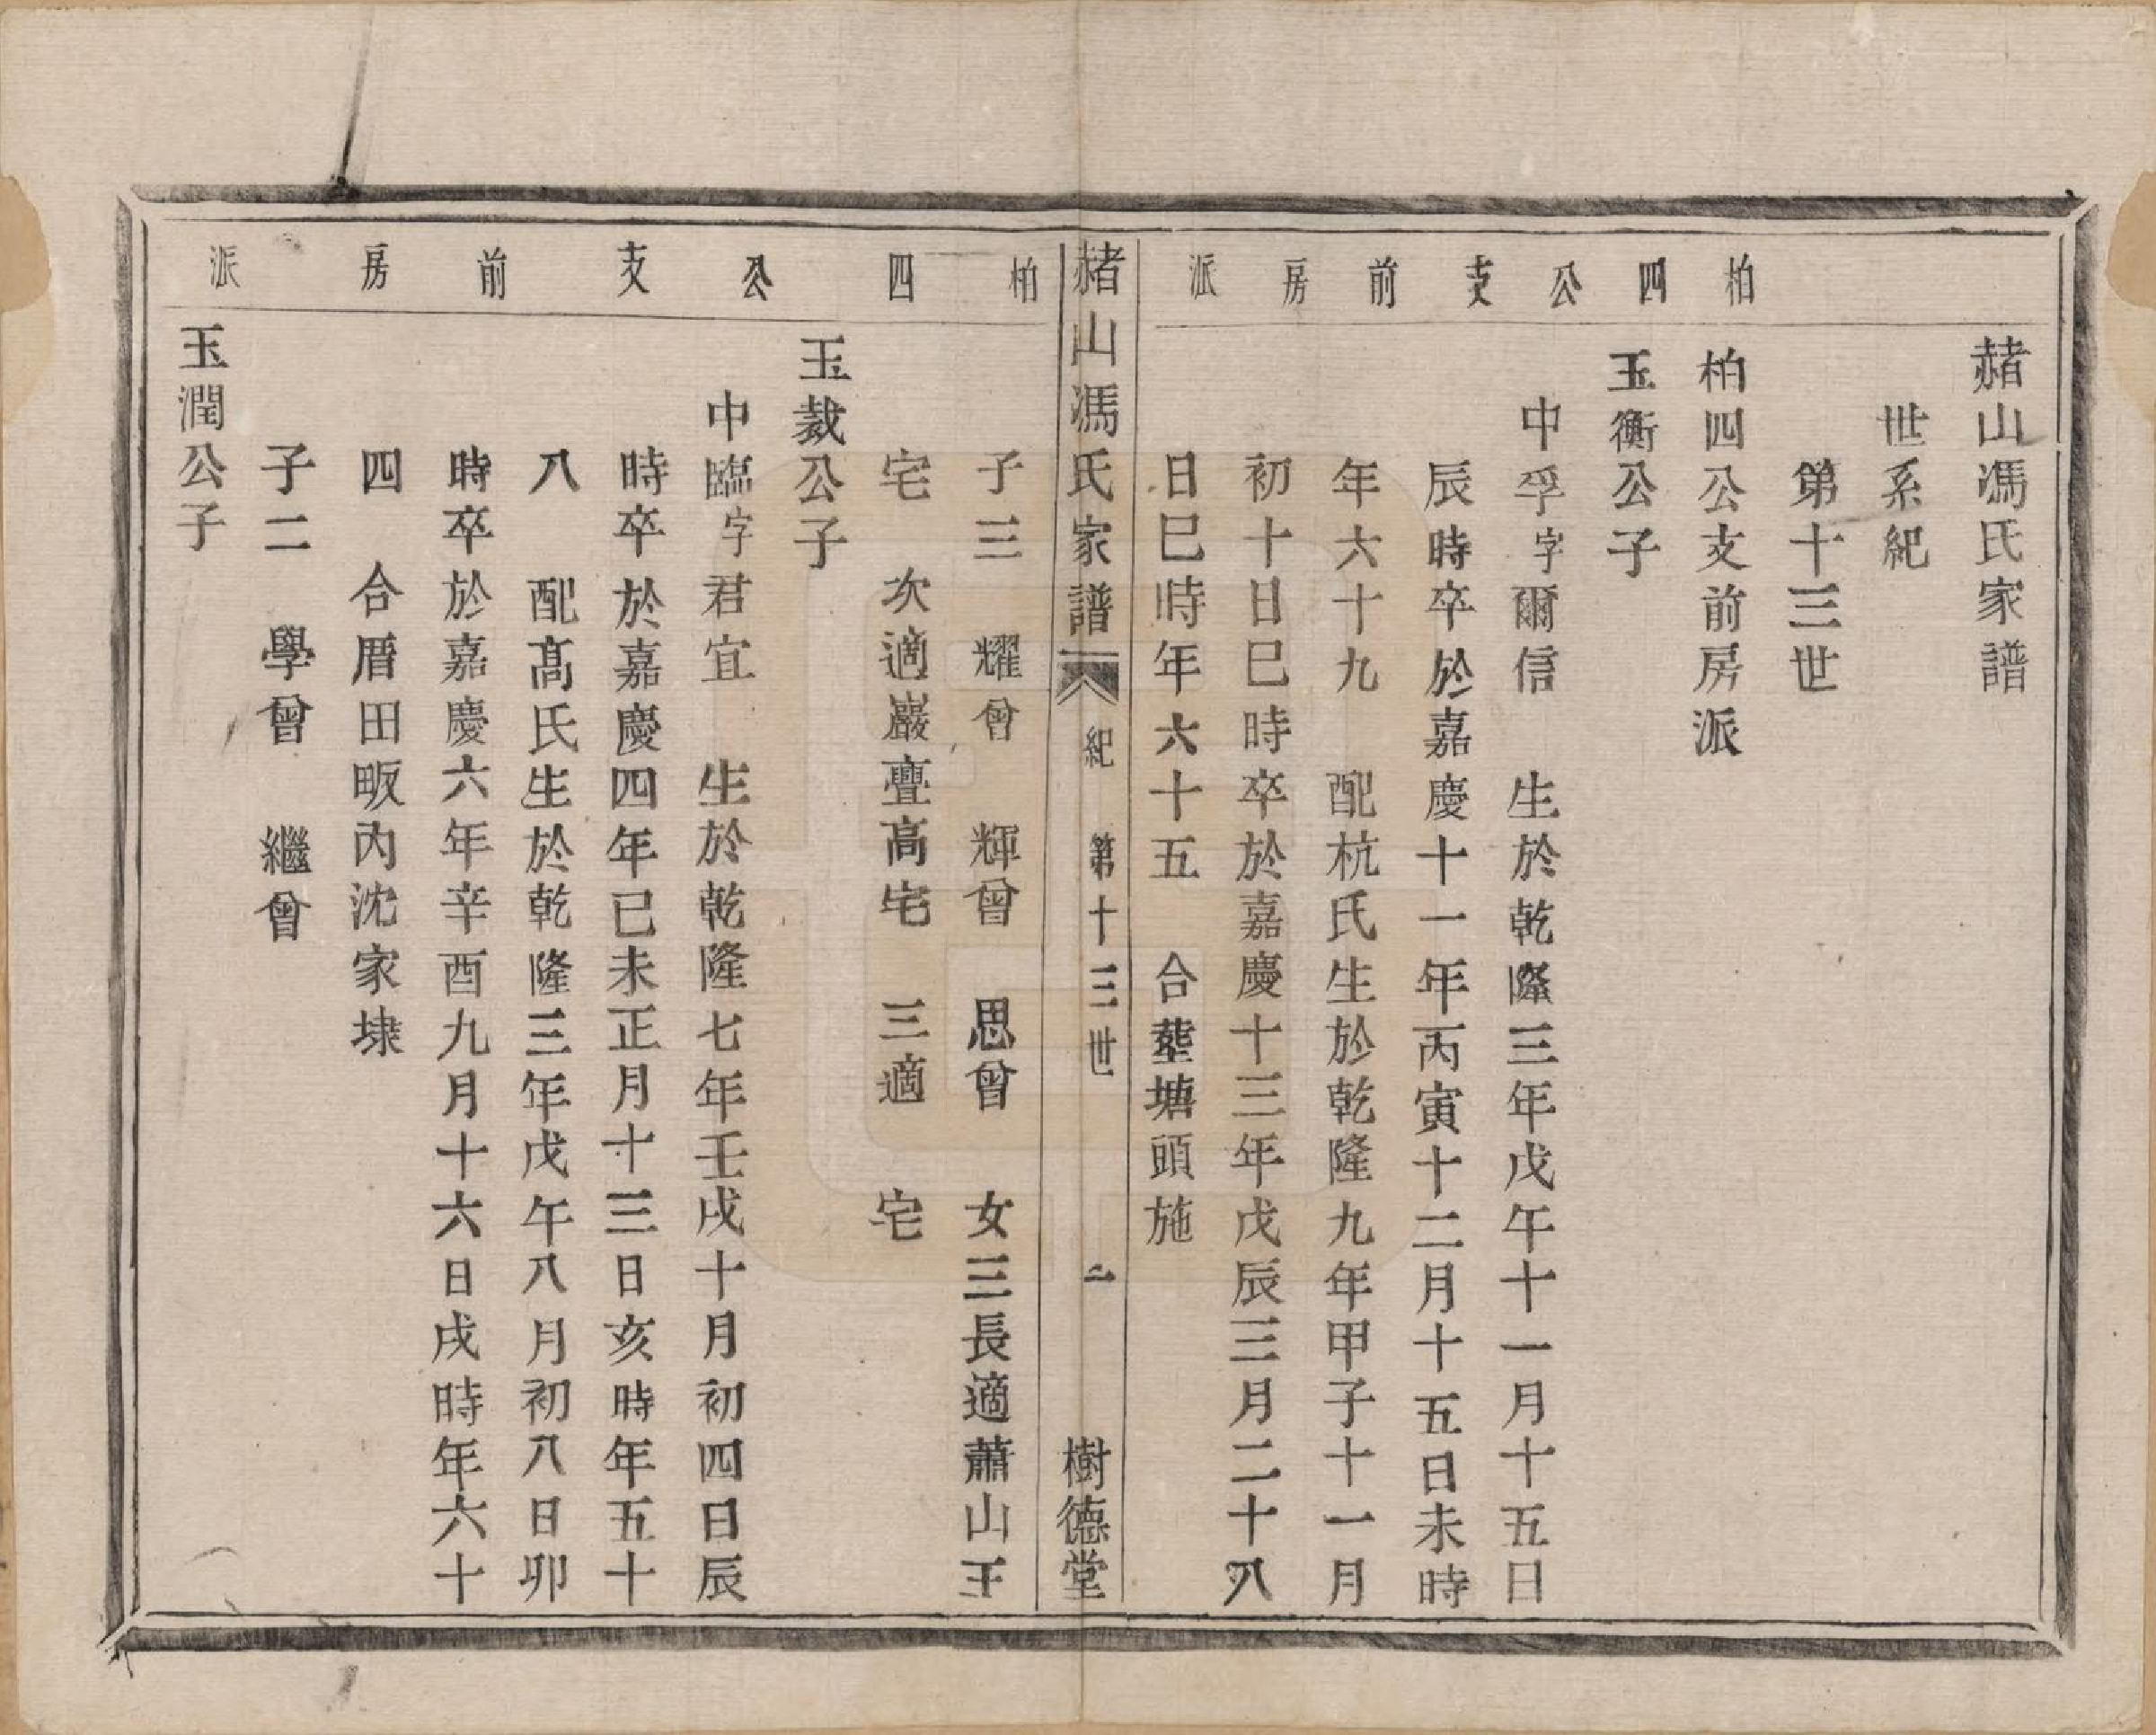 柏四公支前房派
赭山馮氏家譜
世系紀
第十三世
柏四公支前房派
玉衡公子
中孚字爾信　生於乾隆三年戊午十一月十五日
辰時卒於嘉慶十一年丙寅十二月十五日未時
年六十九　配杭氏生於乾隆九年甲子十一月
初十日巳時卒於嘉慶十三年戊辰三月二十八
日巳時年六十五　合塟塘頭施
赭山馮氏家譜　紀　第十三世　二　樹德堂
柏四公支前房派
子三　耀曾　輝曾　思曾　女三長適蕭山王
宅　次適巖亹高宅　三適　宅
玉裁公子
中臨字君宜　生於乾隆七年壬戌十月初四日辰
時卒於嘉慶四年已未正月十三日亥時年五十
八　配髙氏生於乾隆三年戊午八月初八日卯
時卒於嘉慶六年辛酉九月十六日戌時年六十
四　合厝田畈內沈家埭
子二　學曾　繼曾
玉潤公子